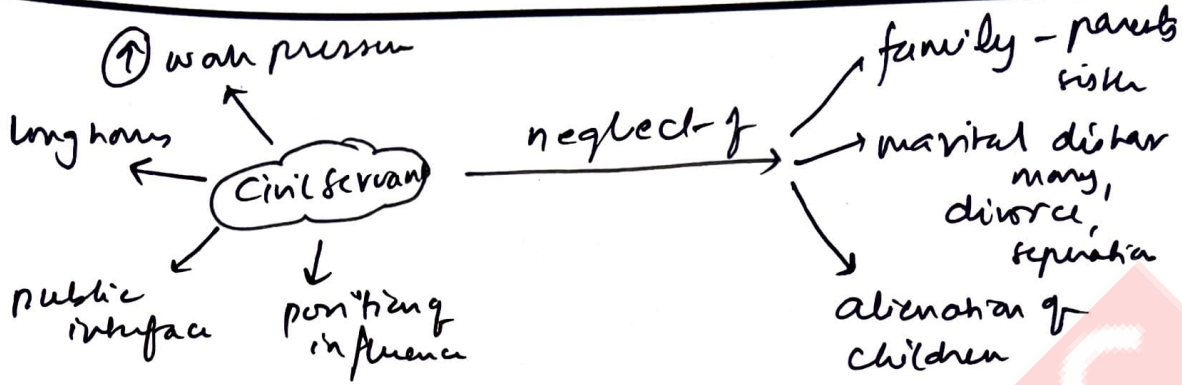 ↑ work pressure
long hours
civil servant
public
interface
position of
influence
neglect of
family - parents
sister
marital dishar
mony,
divorce,
seperation
alienation of
children